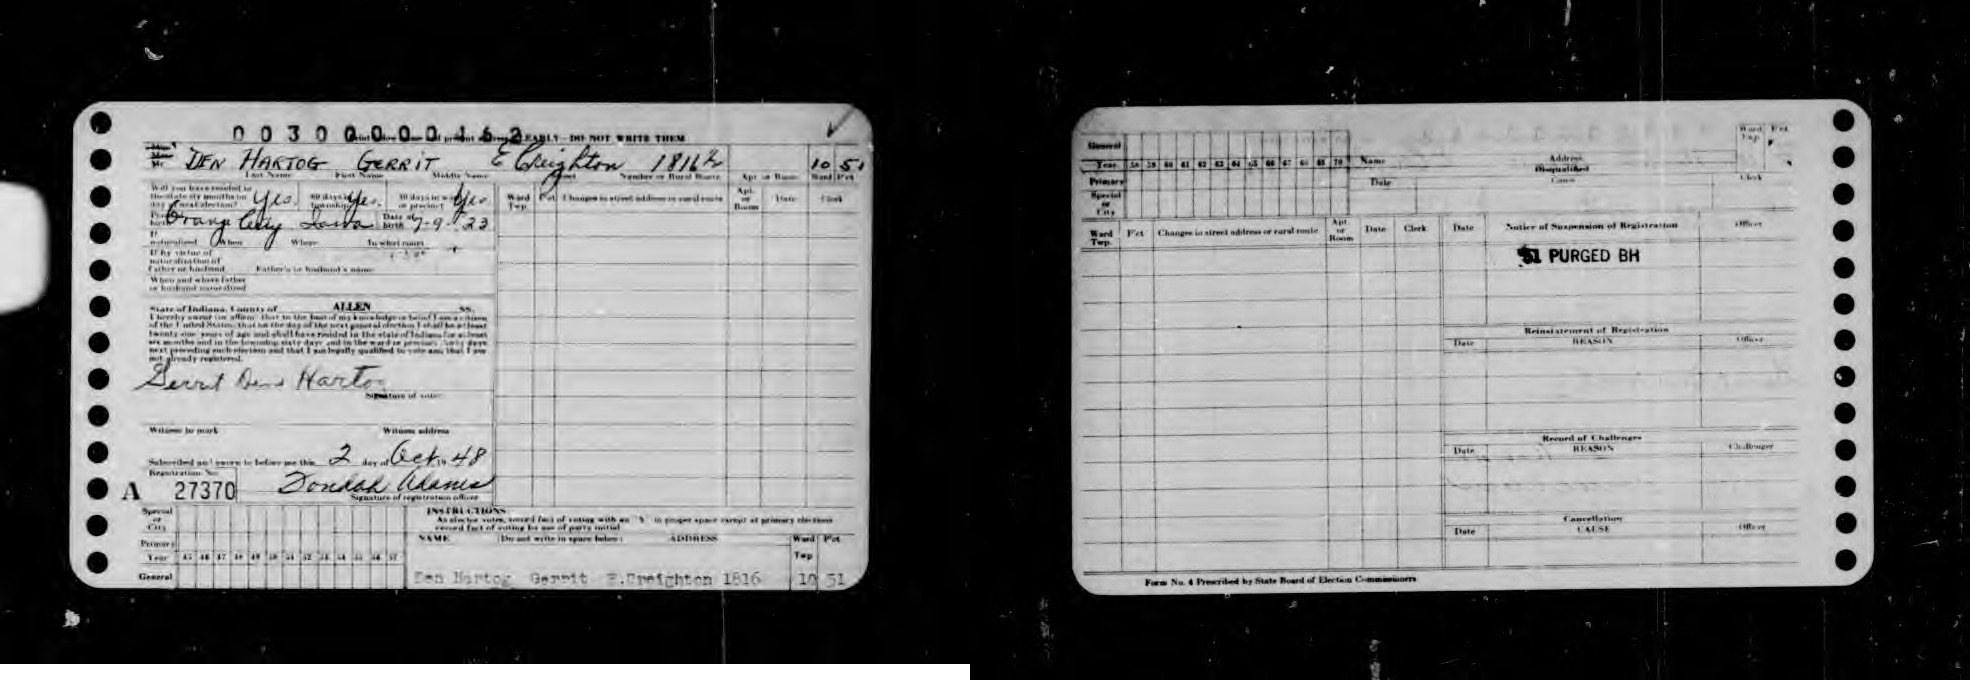 00300000462
EARLY - DO NOT WRITE THEM
Mr. DEN HARTOG GERRIT E Creighton 1816½ 10 51
Last Name First Name Middle Name Street Number or Rural Route Apt or Room Ward Pct
Will you have resided in the state six months on day of next election? Yes. 60 days in township Yes. 30 days in ward or precinct Yes
Ward Twp. Pct Changes in street address or rural route Apt. or Room Date Clerk
Place of birth Orange City Iowa Date of birth 7-9-23
If naturalized When Where In what court
If by virtue of naturalization of father or husband Father's or husband's name
When and where father or husband naturalized
State of Indiana, County of ALLEN SS.
I hereby swear (or affirm) that to the best of my knowledge or belief I am a citizen
of the United States, that on the day of the next general election I shall be at least
twenty-one years of age and shall have resided in the state of Indiana for at least
six months and in the township sixty days and in the ward or precinct thirty days
next preceding such election and that I am legally qualified to vote and that I am
not already registered.
Gerrit Den Hartog
Signature of voter
Witness to mark Witness address
Subscribed and sworn to before me this 2 day of Oct 19 48
Registration No.
A 27370
Signature of registration officer
INSTRUCTIONS
As elector votes, record fact of voting with an "X" in proper space except at primary elections
record fact of voting by use of party initial
Special or City
Primary
Year 45 46 47 48 49 50 51 52 53 54 55 56 57
General
NAME (Do not write in space below) ADDRESS Ward Twp Pct
Den Hartog Gerrit E.Creighton 1816 10 51
General
Year 58 59 60 61 62 63 64 65 66 67 68 69 70
Primary
Special or City
Name Address Ward Twp. Pct
Disqualified
Date Cause Clerk
Ward Twp. Pct Changes in street address or rural route Apt or Room Date Clerk
Date Notice of Suspension of Registration Officer
PURGED BH
Reinstatement of Registration
Date REASON Officer
Record of Challenges
Date REASON Challenger
Cancellation
Date CAUSE Officer
Form No. 4 Prescribed by State Board of Election Commissioners